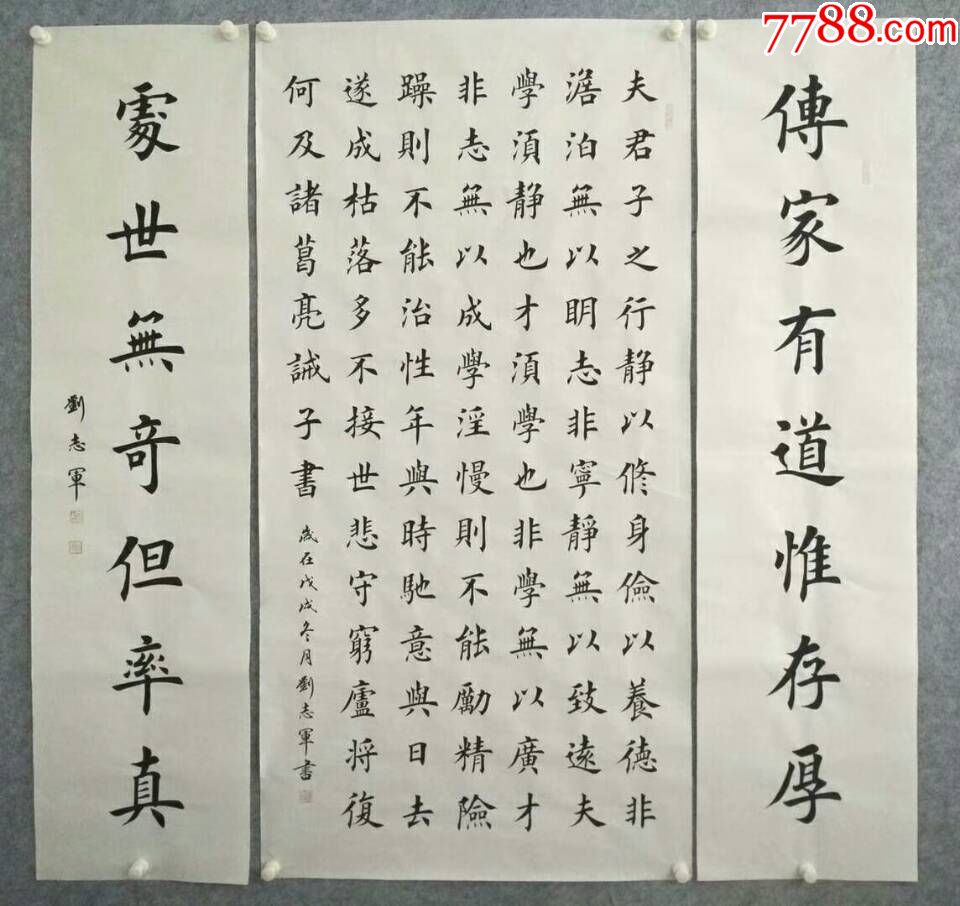 7788.com
傳家有道惟存厚
夫君子之行静以修身儉以養德非
澹泊無以明志非寧静無以致遠夫
學須静也才須學也非學無以廣才
非志無以成學淫慢則不能勵精險
躁則不能治性年與時馳意與日去
遂成枯落多不接世悲守窮廬將復
何及諸葛亮誡子書
歲在戊戌冬月劉志軍書
處世無奇但率真
劉志軍